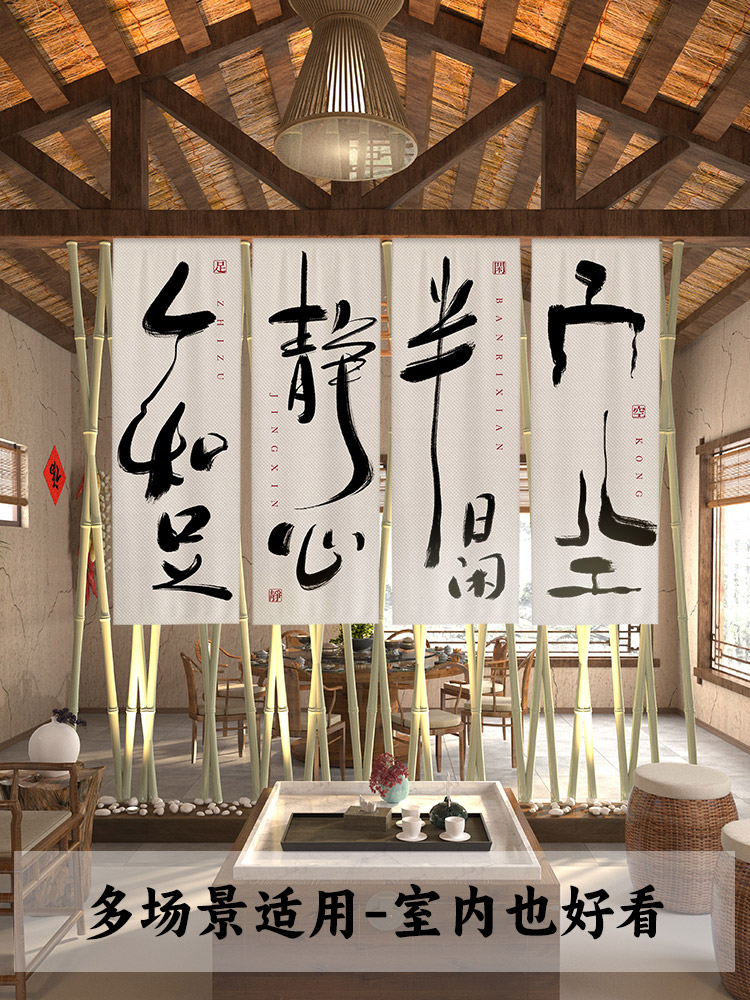 知足
足
ZHIZU
静心
JINGXIN
静
半日闲
閑
BANRIXIAN
空
空
KONG
福
多场景适用-室内也好看